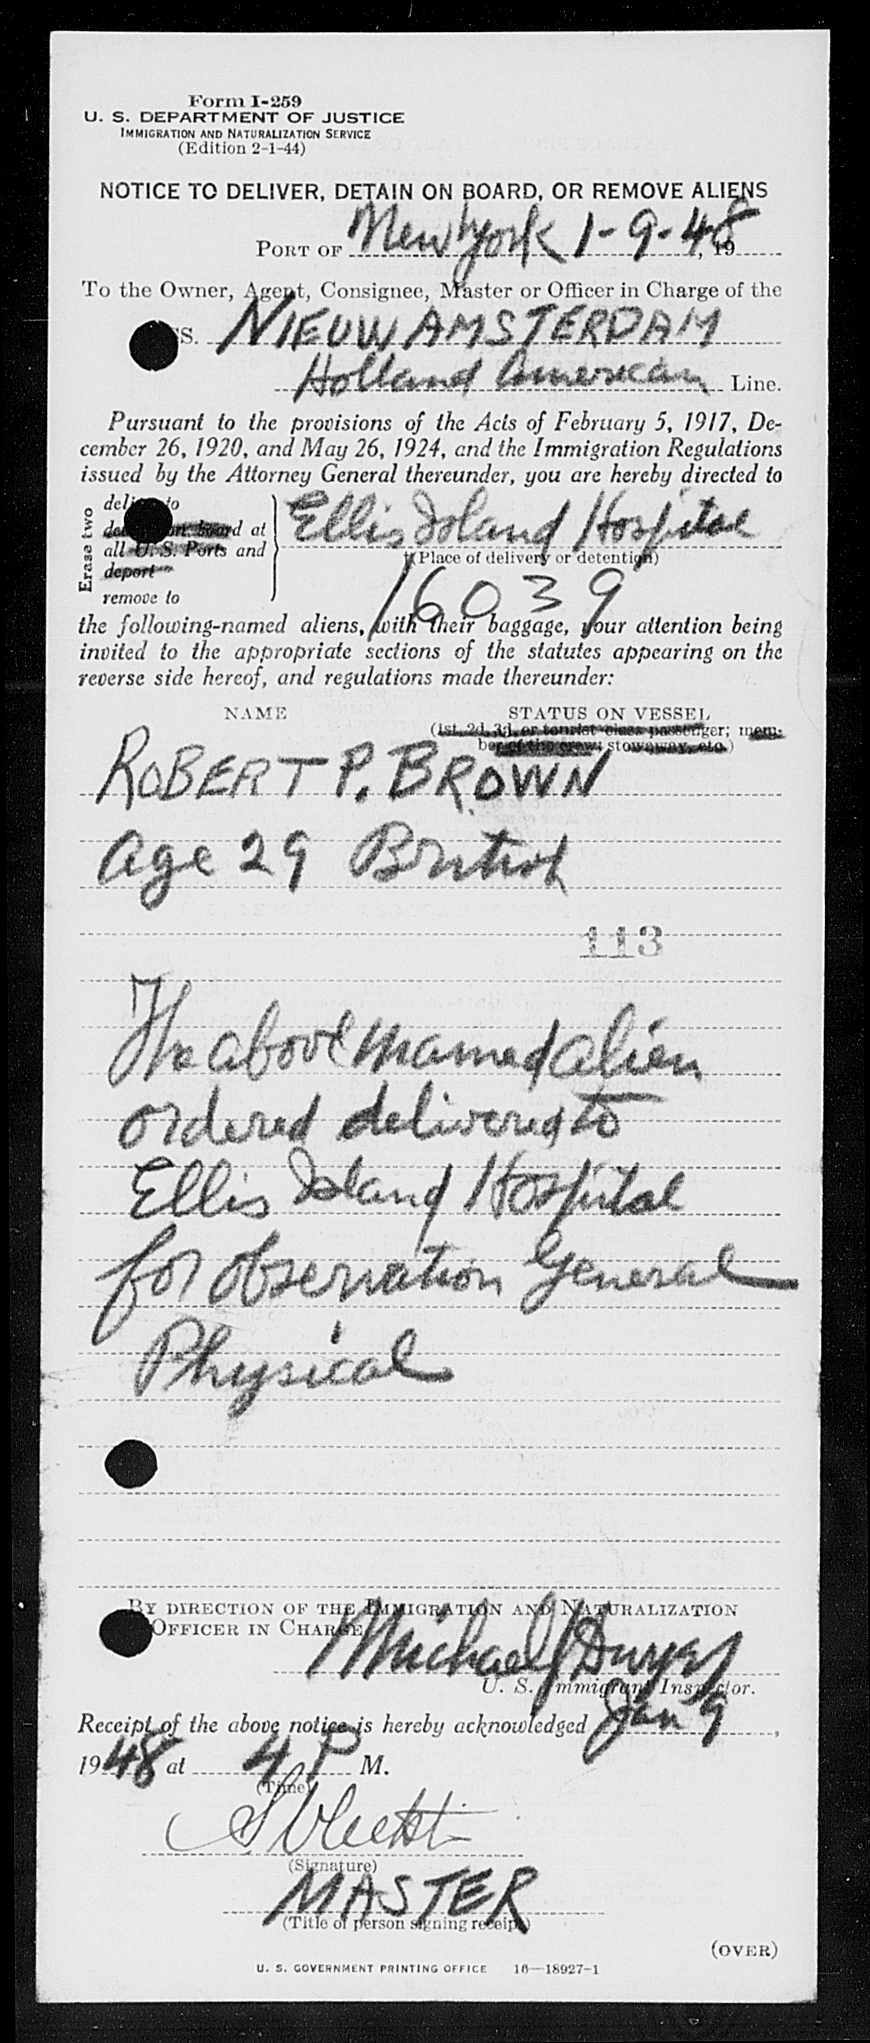 Form I-259
U. S. DEPARTMENT OF JUSTICE
IMMIGRATION AND NATURALIZATION SERVICE
(Edition 2-1-44)
NOTICE TO DELIVER, DETAIN ON BOARD, OR REMOVE ALIENS
PORT OF New York 1-9-48, 19
To the Owner, Agent, Consignee, Master or Officer in Charge of the
SS. NIEUW AMSTERDAM
Holland American Line.
Pursuant to the provisions of the Acts of February 5, 1917, De-
cember 26, 1920, and May 26, 1924, and the Immigration Regulations
issued by the Attorney General thereunder, you are hereby directed to
Erase two
deliver to
detain on board at
all U. S. Ports and
deport
remove to
Ellis Island Hospital
(Place of delivery or detention)
16039
the following-named aliens, with their baggage, your attention being
invited to the appropriate sections of the statutes appearing on the
reverse side hereof, and regulations made thereunder:
NAME STATUS ON VESSEL
(1st, 2d, 3d, or tourist class passenger; mem-
ber of the crew; stowaway, etc.)
ROBERT P. BROWN
Age 29 British
113
The above named alien
ordered delivered to
Ellis Island Hospital
for observation General
Physical
BY DIRECTION OF THE IMMIGRATION AND NATURALIZATION
OFFICER IN CHARGE
Michael J Dwyer
U. S. Immigrant Inspector.
Receipt of the above notice is hereby acknowledged Jan 9,
1948 at 4 P M.
(Time)
(Signature)
MASTER
(Title of person signing receipt)
(OVER)
U. S. GOVERNMENT PRINTING OFFICE 16—18927-1